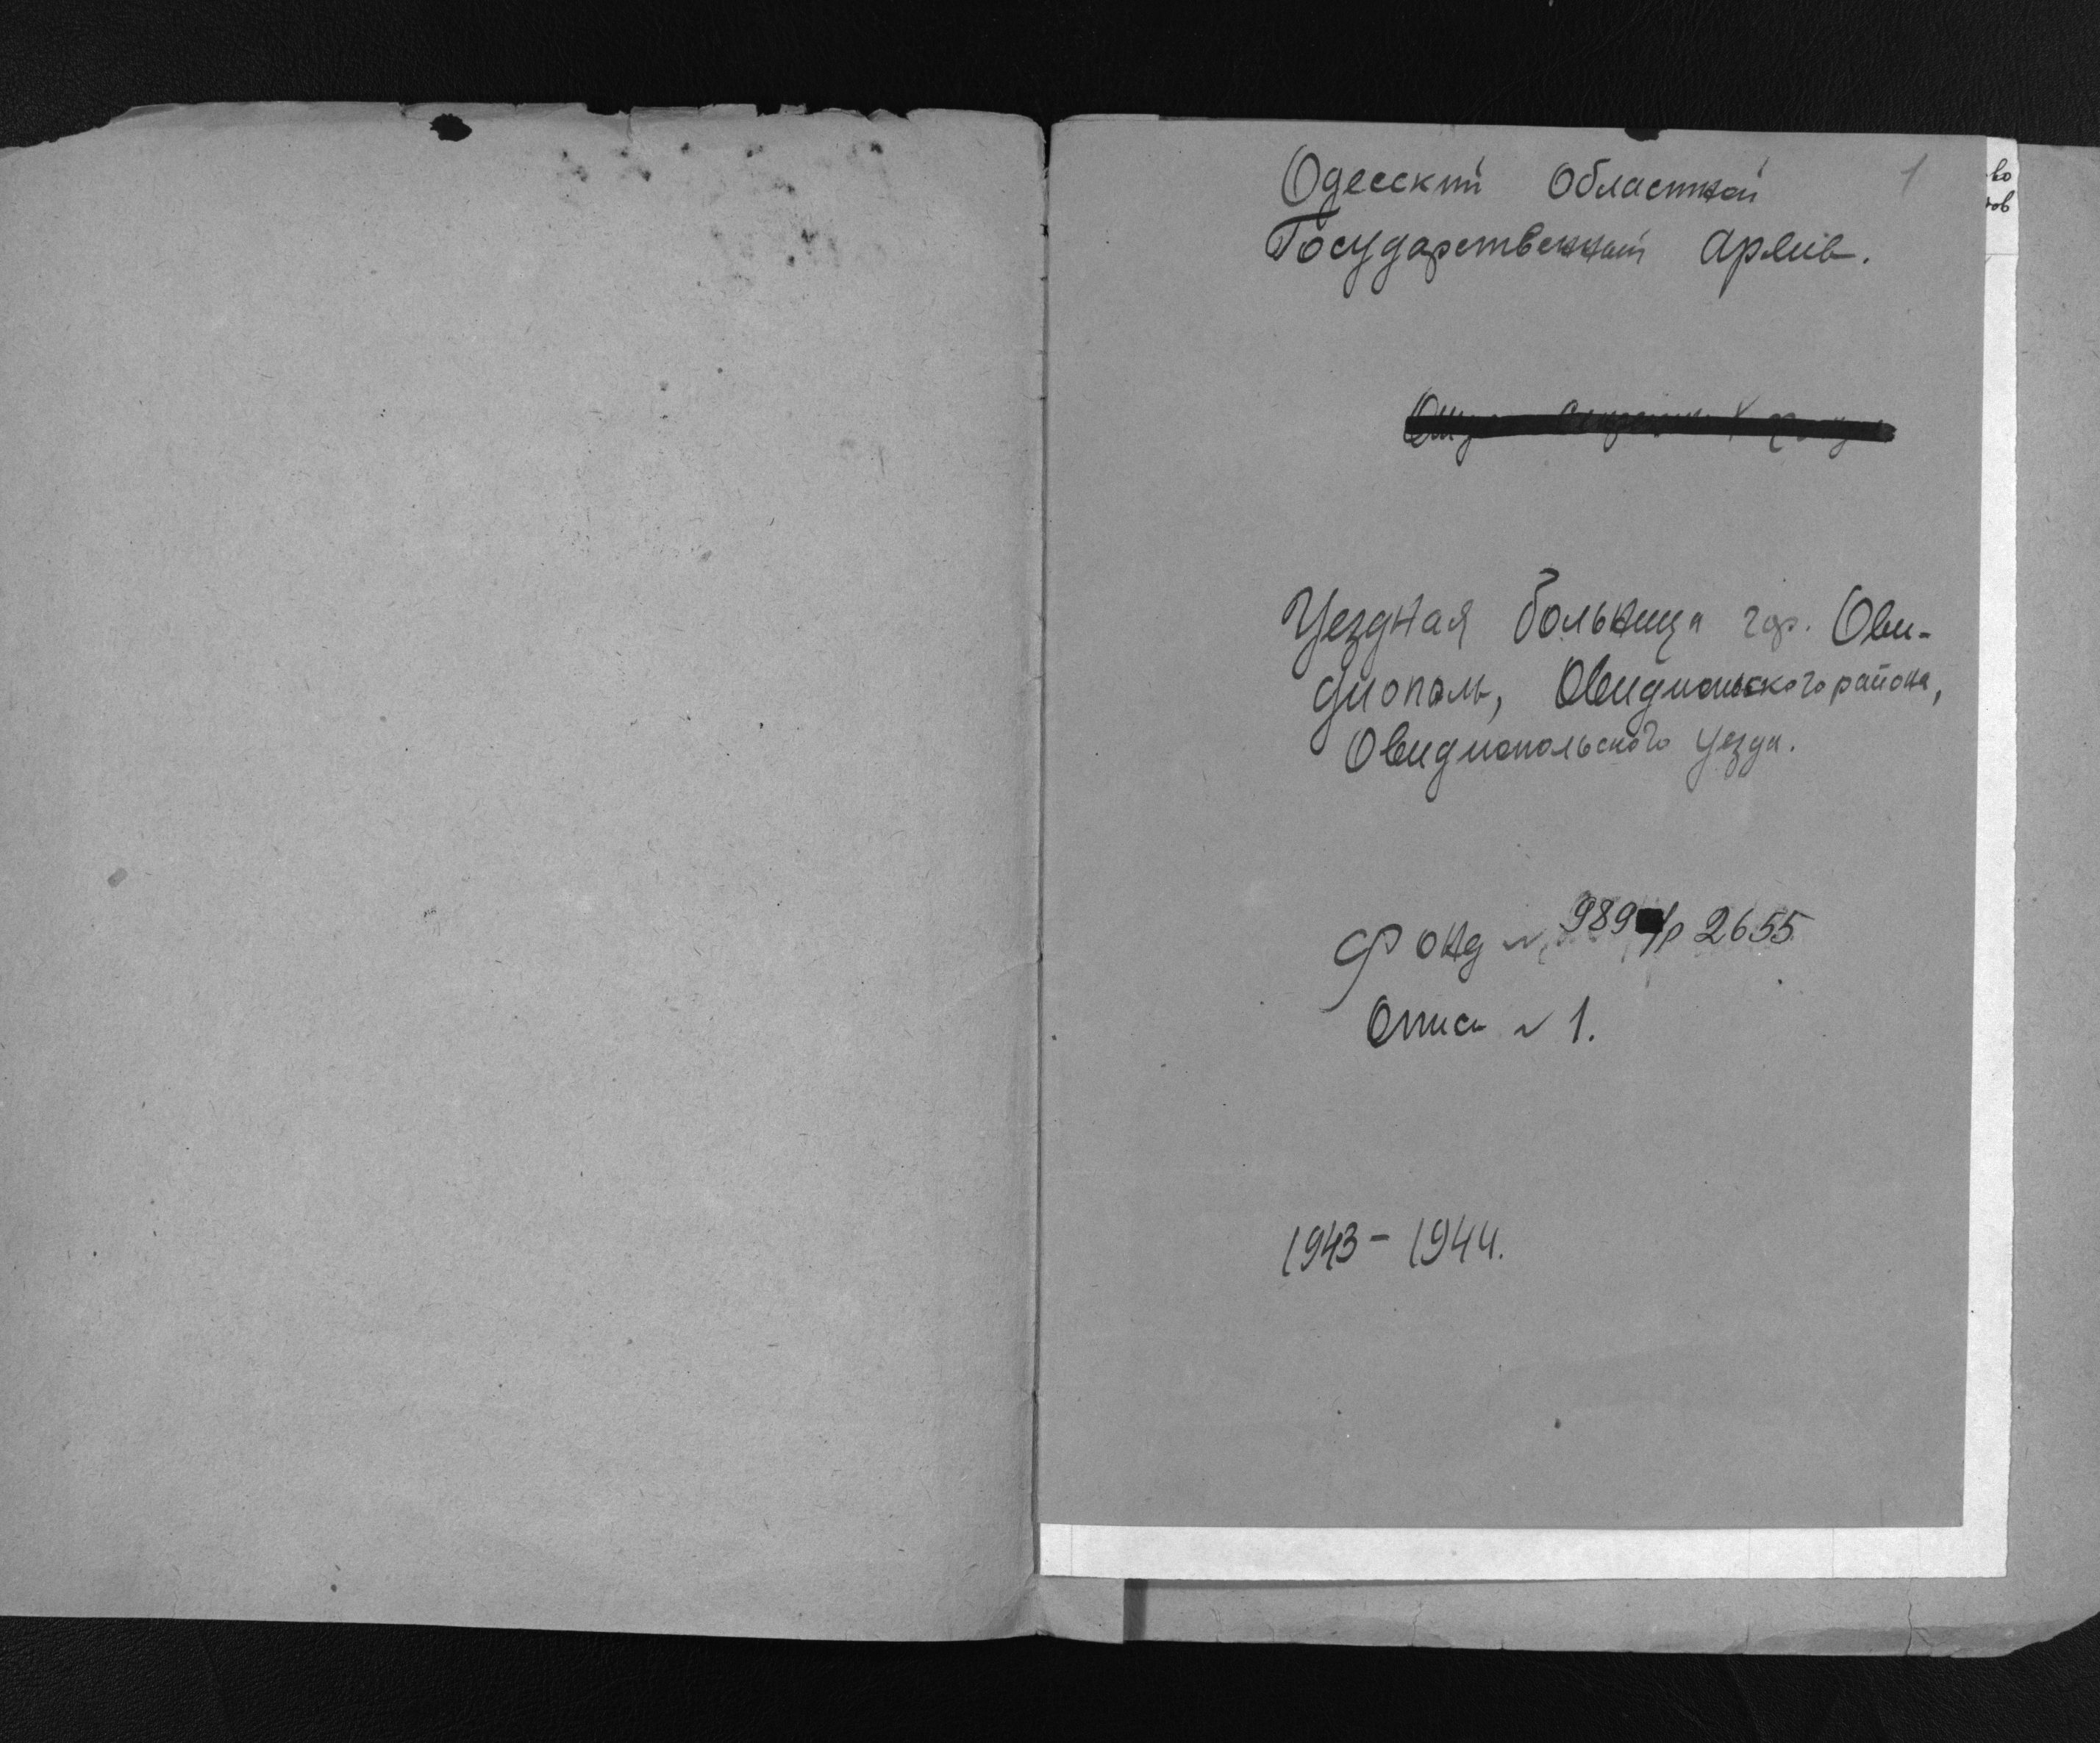 Одесский Областной
1
Государственный Архив.
Уездная больница гор. Ови-
диополь, Овидиопольского района,
Овидиопольского уезда.
Фонд № 989 р 2655
Опись № 1.
1943 - 1944.